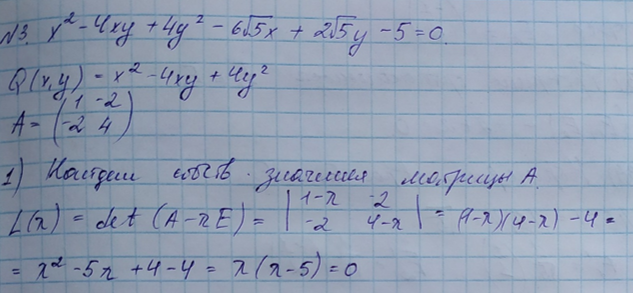 №3. x² - 4xy + 4y² - 6√5x + 2√5y - 5 = 0.
Q(x,y) = x² - 4xy + 4y²
A = (1 -2
-2 4)
1) Найдём собств. значения матрицы A.
L(λ) = det (A - λE) = |1-λ -2
-2 4-λ| = (1-λ)(4-λ) - 4 =
= λ² - 5λ + 4 - 4 = λ(λ - 5) = 0